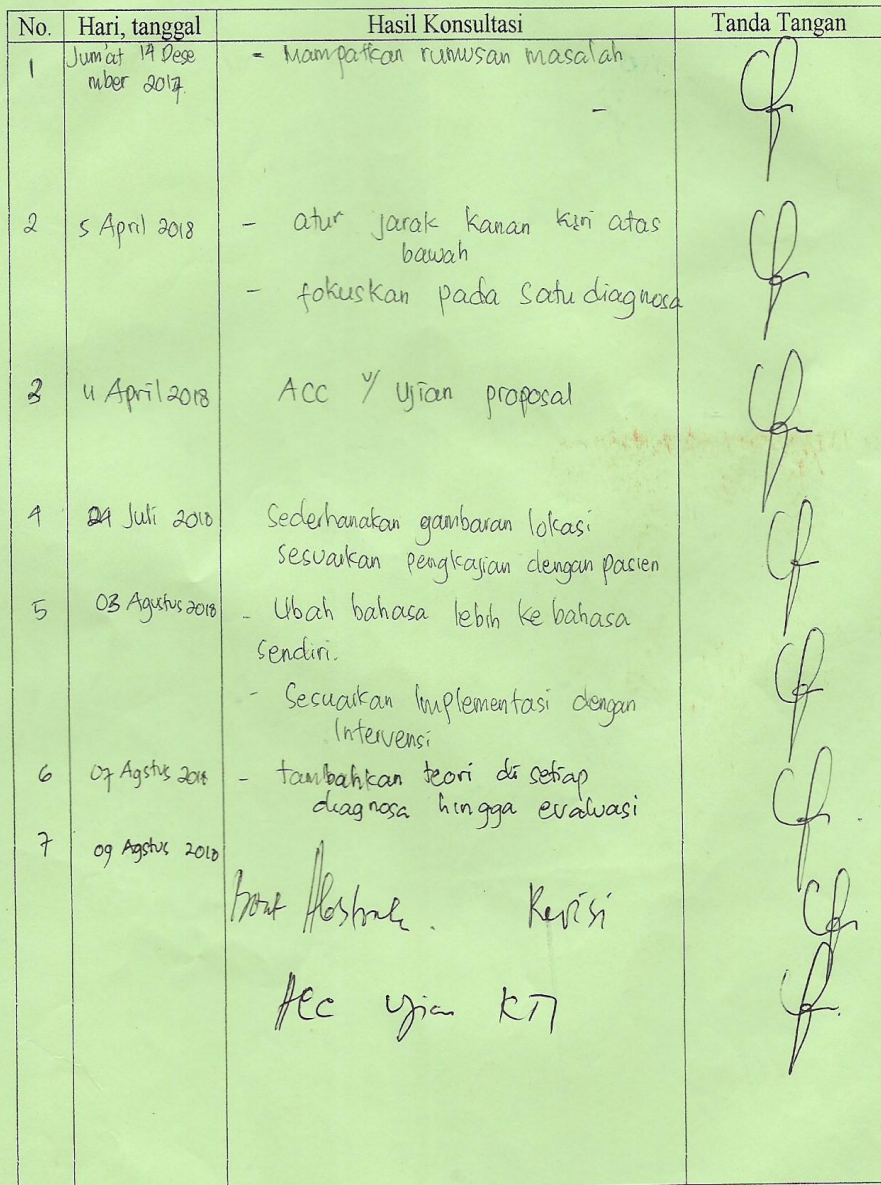 No. Hari, tanggal Hasil Konsultasi Tanda Tangan
1 Jum'at 14 Dese - Mampatkan rumusan masalah
mber 2017. -
2 5 April 2018 - atur jarak kanan kiri atas
bawah
- fokuskan pada satu diagnosa
3 11 April 2018 ACC u/ Ujian proposal
4 24 Juli 2018 Sederhanakan gambaran lokasi
sesuaikan pengkajian dengan pasien
5 03 Agustus 2018 - Ubah bahasa lebih ke bahasa
sendiri.
- Sesuaikan Implementasi dengan
Intervensi
6 07 Agstus 2018 - tambahkan teori di setiap
diagnosa hingga evaluasi
7 09 Agstus 2018
Buat Abstrak. Revisi
Acc Ujian KTI